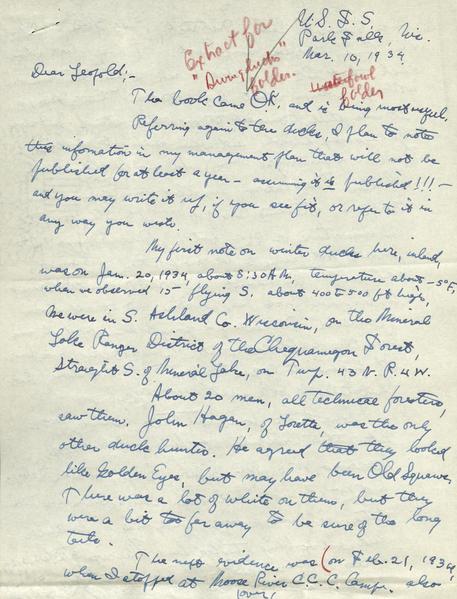 U.S.F.S.
Park Falls, Wis.
Mar. 10, 1934.
Extract for
"Diving Ducks"
folder.
Waterfowl
folder
Dear Leopold:-
The book came OK. and is being most useful.
Referring again to these ducks, I plan to note
this information in my management plan that will not be
published for at least a year - assuming it is published!!! -
and you may write it up, if you see fit, or refer to it in
any way you wish.
My first note on winter ducks here, inland,
was on Jan. 20, 1934, about 8:30 A.M., temperature about -5°F,
when we observed 15 flying S. about 400 to 500 ft high,
We were in S. Ashland Co. Wisconsin, on the Mineral
Lake Ranger District of the Chequamegon Forest,
Straight S. of Mineral Lake, on Twp. 43 N. R. 4 W.
About 20 men, all technical foresters,
saw them. John Hagen, of, was the only
other duck hunter. He agreed that they looked
like Golden Eyes, but may have been Old Squaws.
There was a lot of white on them, but they
were a bit too far away to be sure of the long
tails.
The next evidence was (on Feb. 21, 1934,
when I stopped at Moose River C.C.C. Camp. also
(over)